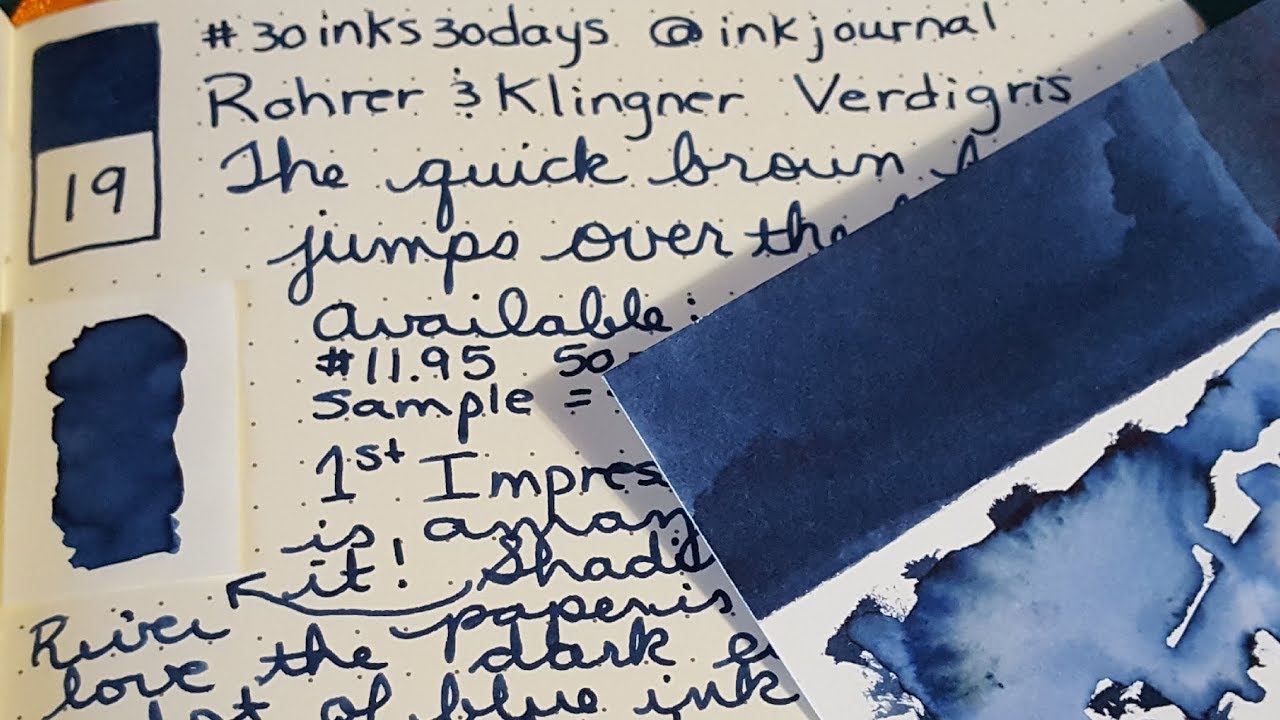 #30inks30days @inkjournal
Rohrer & Klingner Verdigris
19
The quick brown
jumps over the
Available:
#11.95 50
Sample =
1st Impres
is
it! Shadi
River paper is
love the dark
lot of blue ink